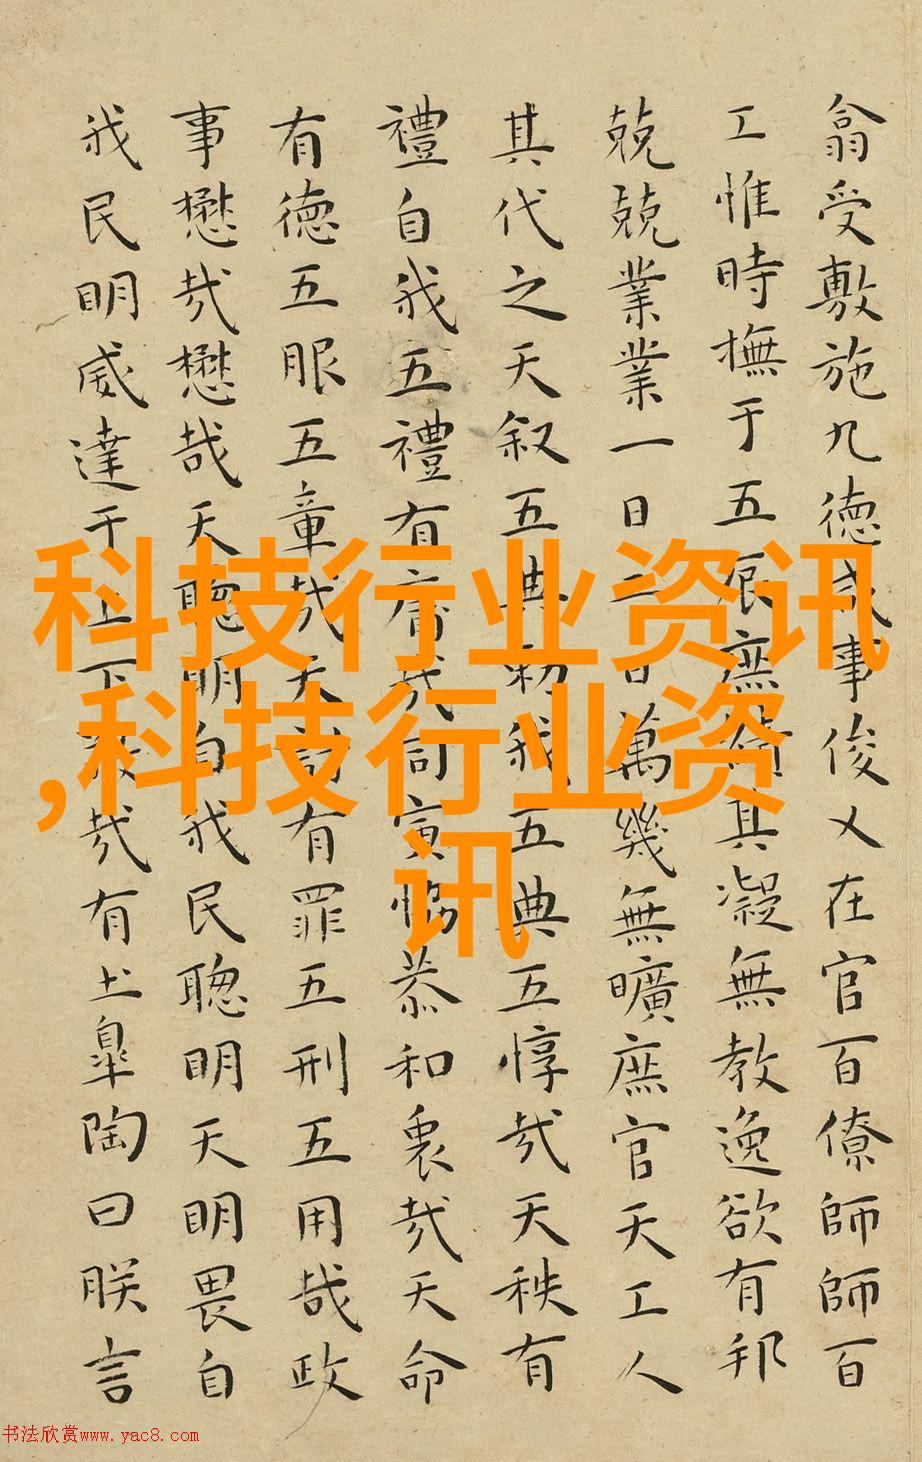 翕受敷施九德咸事俊乂在官百僚師師百
工惟時撫于五辰庶績其凝無教逸欲有邦
兢兢業業一日二日萬幾無曠庶官天工人
其代之天叙五典勑我五典五惇哉天秩有
禮自我五禮有庸哉同寅協恭和衷哉天命
有德五服五章哉天討有罪五刑五用哉政
事懋哉懋哉天聰明自我民聰明天明畏自
我民明威達于上下敬哉有土皐陶曰朕言
科技行业资讯
,科技行业资
讯
书法欣赏www.yac8.com